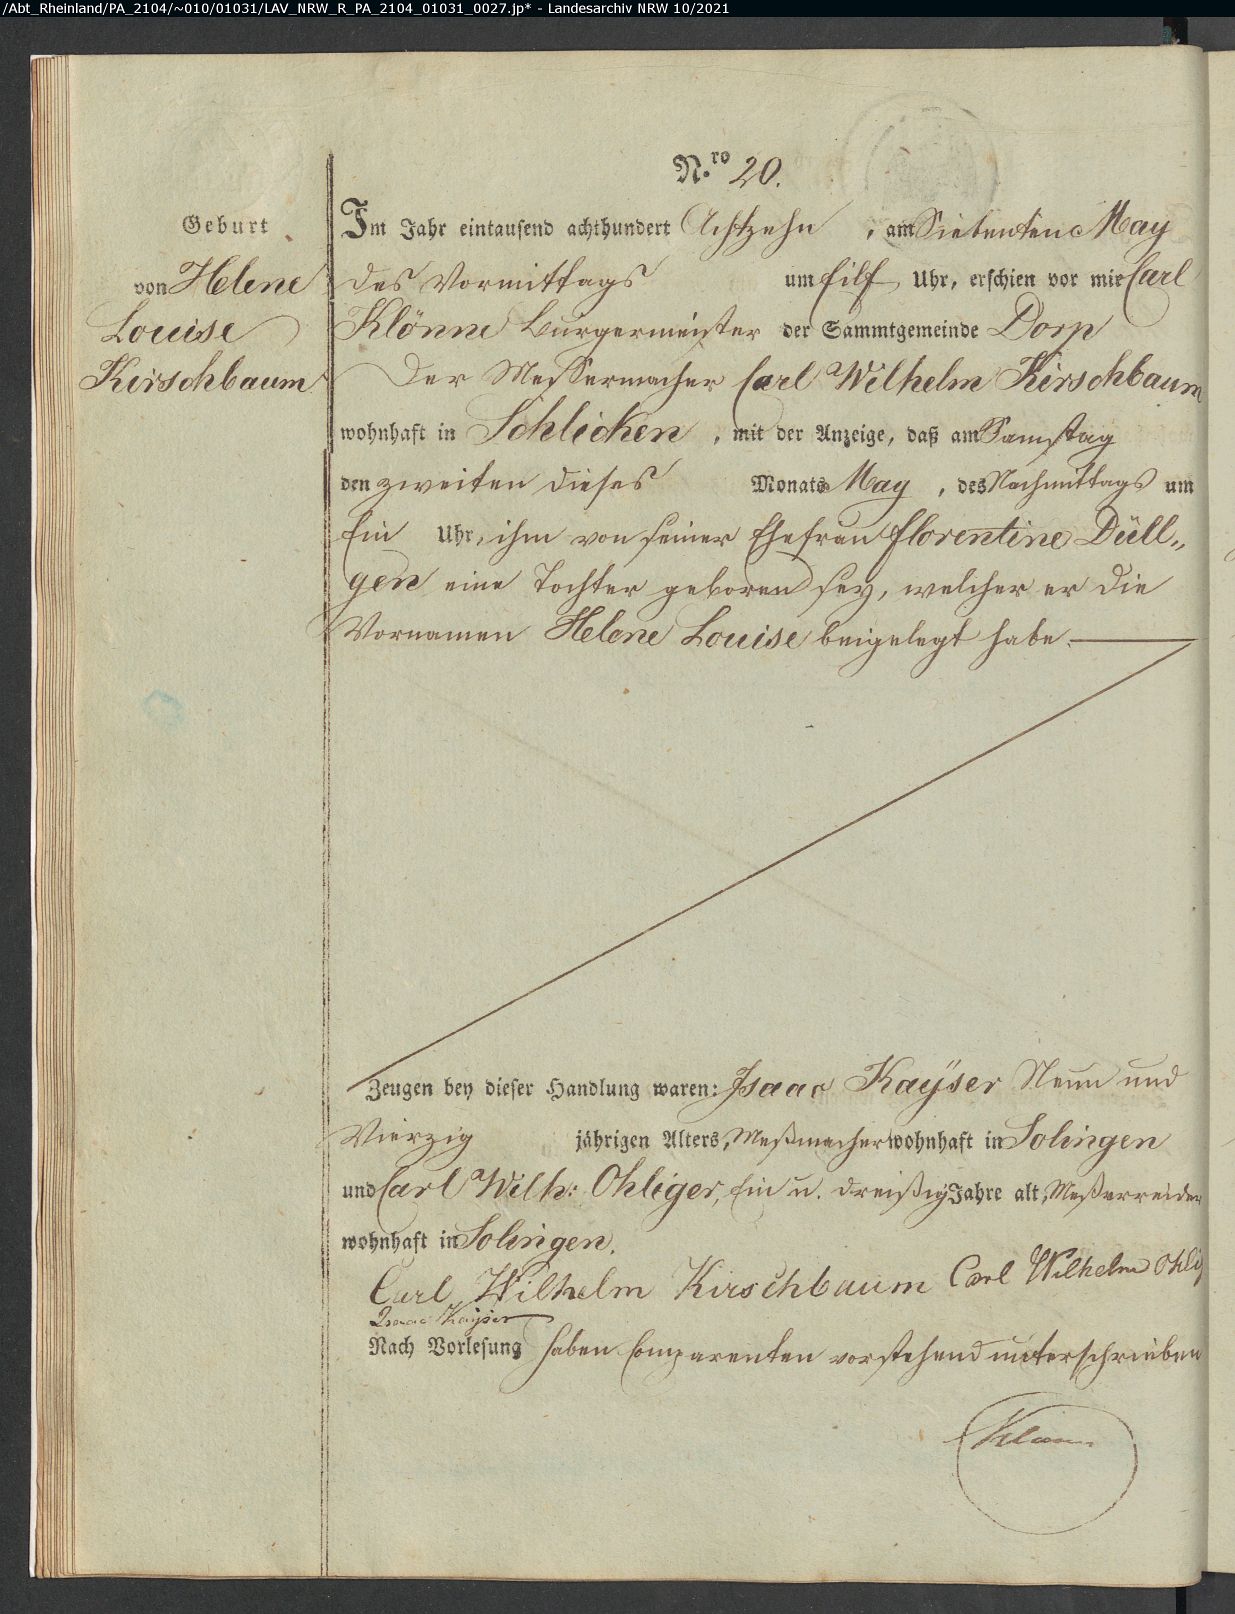 /Abt_Rheinland/PA_2104/~010/01031/LAV_NRW_R_PA_2104_01031_0027.jp* - Landesarchiv NRW 10/2021
N.ro 20.
Geburt
von Helene
Louise
Kirschbaum
Im Jahr eintausend achthundert Achtzehn, am Siebenten May
des Vormittags um Eilf Uhr, erschien vor mir Carl
Klönne Burgermeister der Sammtgemeinde Dorp
Der Messermacher Carl Wilhelm Kirschbaum
wohnhaft in Schlicken, mit der Anzeige, daß am Samstag
den zweiten dieses Monats May, des Nachmittags um
Ein Uhr, ihm von seiner Ehefrau Florentine Düll„
gen eine Tochter geboren sey, welcher er die
Vornamen Helene Louise beigelegt habe.
Zeugen bey dieser Handlung waren: Isaac Kaÿser Neun und
Vierzig jährigen Alters, Meßmacher wohnhaft in Solingen
und Carl Wilh: Ohliger, Ein u. dreißig Jahre alt, Meßerreider
wohnhaft in Solingen.
Carl Wilhelm Kirschbaum Carl Wilhelm Ohlig
Isaac Kayser
Nach Vorlesung haben Comparenten vorstehend unterschrieben
Klönne